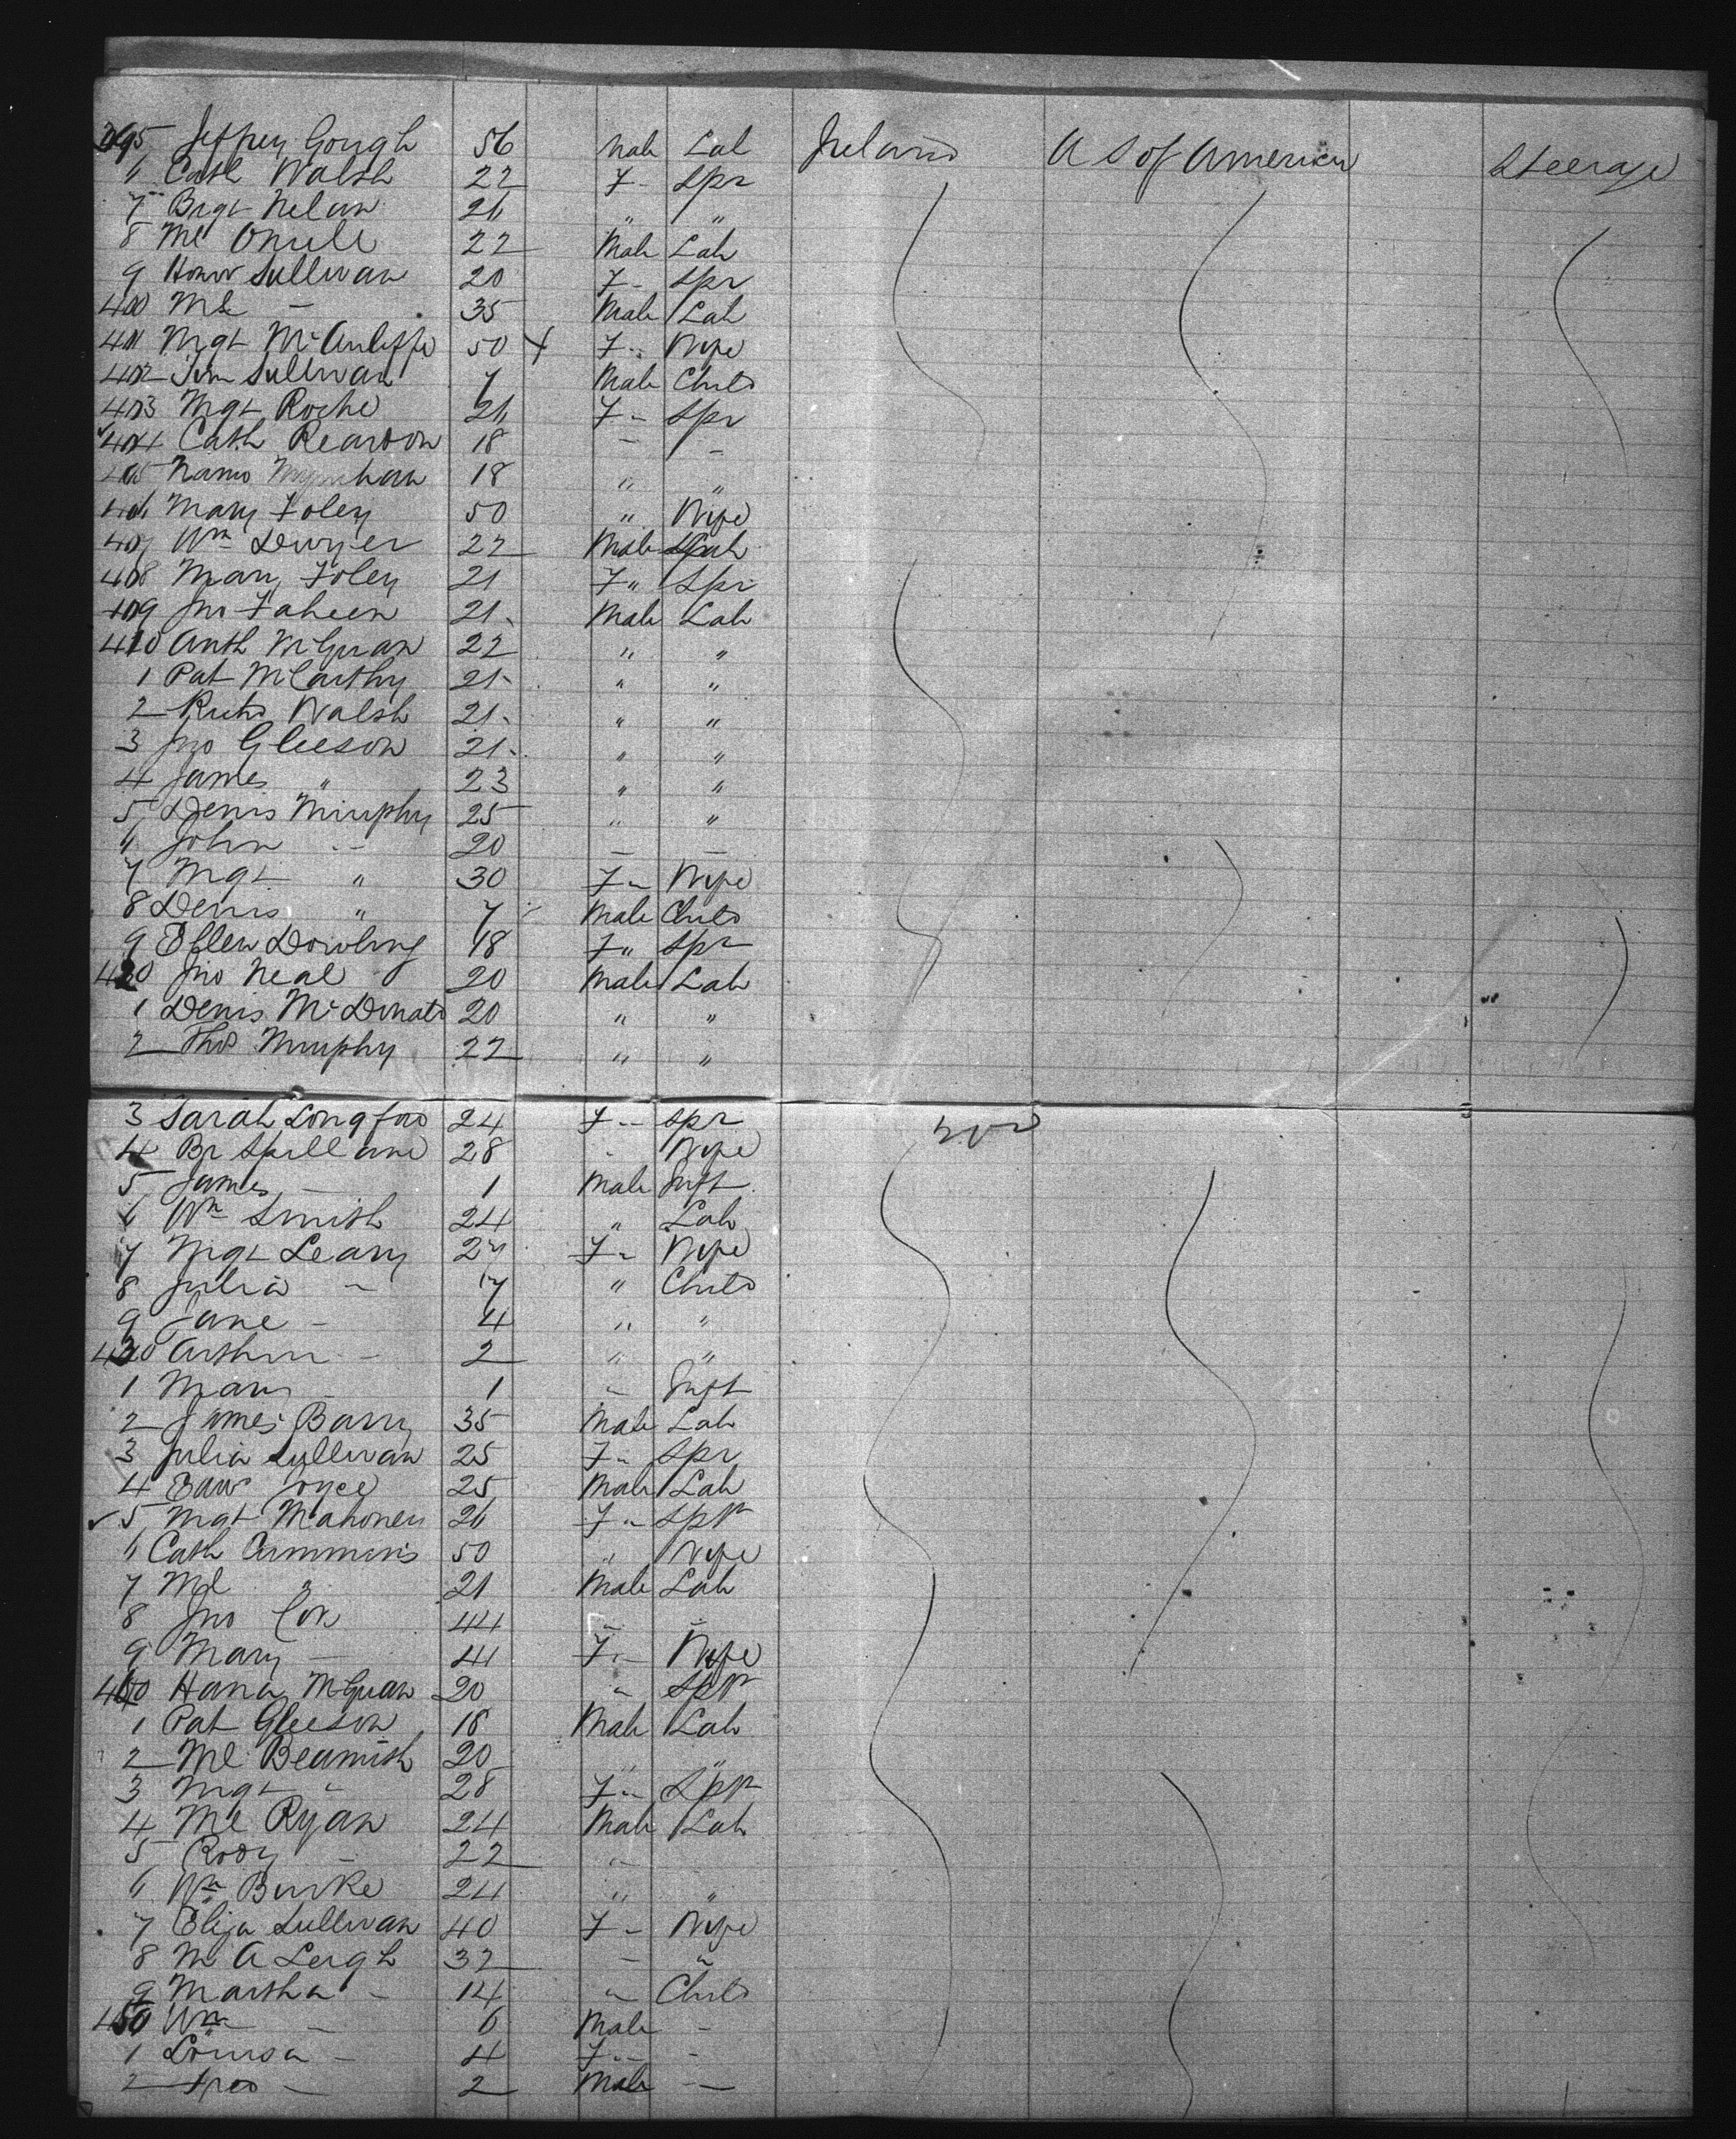 395 Jeffrey Gough 56 Male Lab Ireland U S of America Steerage
6 Cath Walsh 22 F " Spr
7 Brgt Nelan 26 " "
8 Ml ONeill 22 Male Lab
9 Honor Sullivan 20 F " Spr
400 Ml — 35 Male Lab
401 Mgt McAuliffe 50 X F " Wife
402 Tim Sullivan 7 Male Child
403 Mgt Roche 26 F " Spr
✓ 404 Cath Reardon 18 — —
405 18 " "
406 Mary Foley 50 " Wife
407 Wm Dwyer 22 Male Lab
408 Mary Foley 21 F " Spr
409 Jno Faheen 21 Male Lab
410 Anth McGuan 22 " "
1 Pat McCarthy 21 " "
2 Richd Walsh 21 " "
3 Jno Gleeson 21 " "
4 James " 23 " "
5 Denis Murphy 25 " "
6 John — 20 — —
7 Mgt " 30 F " Wife
8 Denis " 7 Male Child
9 Ellen Dowling 18 F " Spr
420 Jno Neal 20 Male Lab
1 Denis McDonald 20 " "
2 Thos Murphy 22 " "
3 Sarah Longford 24 F " Spr
4 Br Spillane 28 " Wife
5 James — 1 Male Inft
6 Wm Smith 24 " Lab
7 Mgt Leary 27 F " Wife
8 Julia — 7 " Child
9 Jane — 4 " "
430 Arthur — 2 " "
1 Mary — 1 " Inft
2 James Barry 35 Male Lab
3 Julia Sullivan 25 F " Spr
4 Edwd Joyce 25 Male Lab
✓ 5 Mgt Mahoney 26 F " Spr
6 Cath Cummins 50 " Wife
7 Ml " 21 Male Lab
8 Jno Cox 44 — —
9 Mary — 41 F " Wife
440 Hana McGuan 20 " Spr
1 Pat Gleeson 18 Male Lab
2 Ml Beamish 20 " "
3 Mgt " 28 F " Spr
4 Ml Ryan 24 Male Lab
5 Rody — 22 "
6 Wm Burke 24 " "
7 Eliza Sullivan 40 F " Wife
8 M A Leigh 32 — "
9 Martha — 14 " Child
450 Wm — 6 Male —
1 Louisa — 4 F " —
2 Fred — 2 Male —